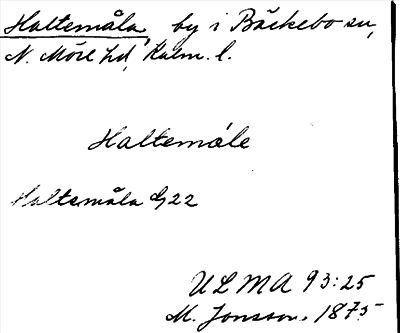 Haltemåla, by i Bäckebo sn,
N. Möre hd, Kalm. l.
Haltemåle
Haltemåla G22
ULMA 93:25
M. Jonsson. 1875